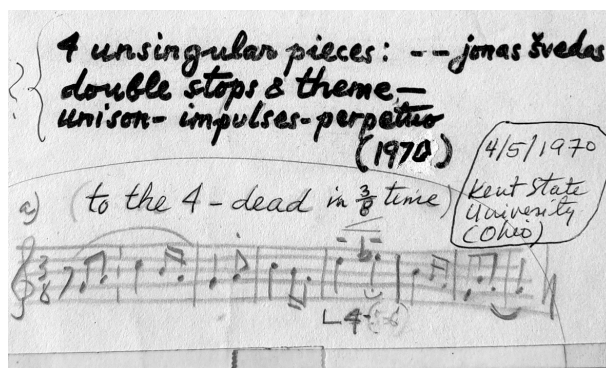 4 unsingular pieces: -- jonas švedas
double stops & theme—
unison-impulses-perpetuo
(1970)
4/5/1970
Kent State
University
(Ohio)
a) (to the 4-dead in 3/8 time)
3/8